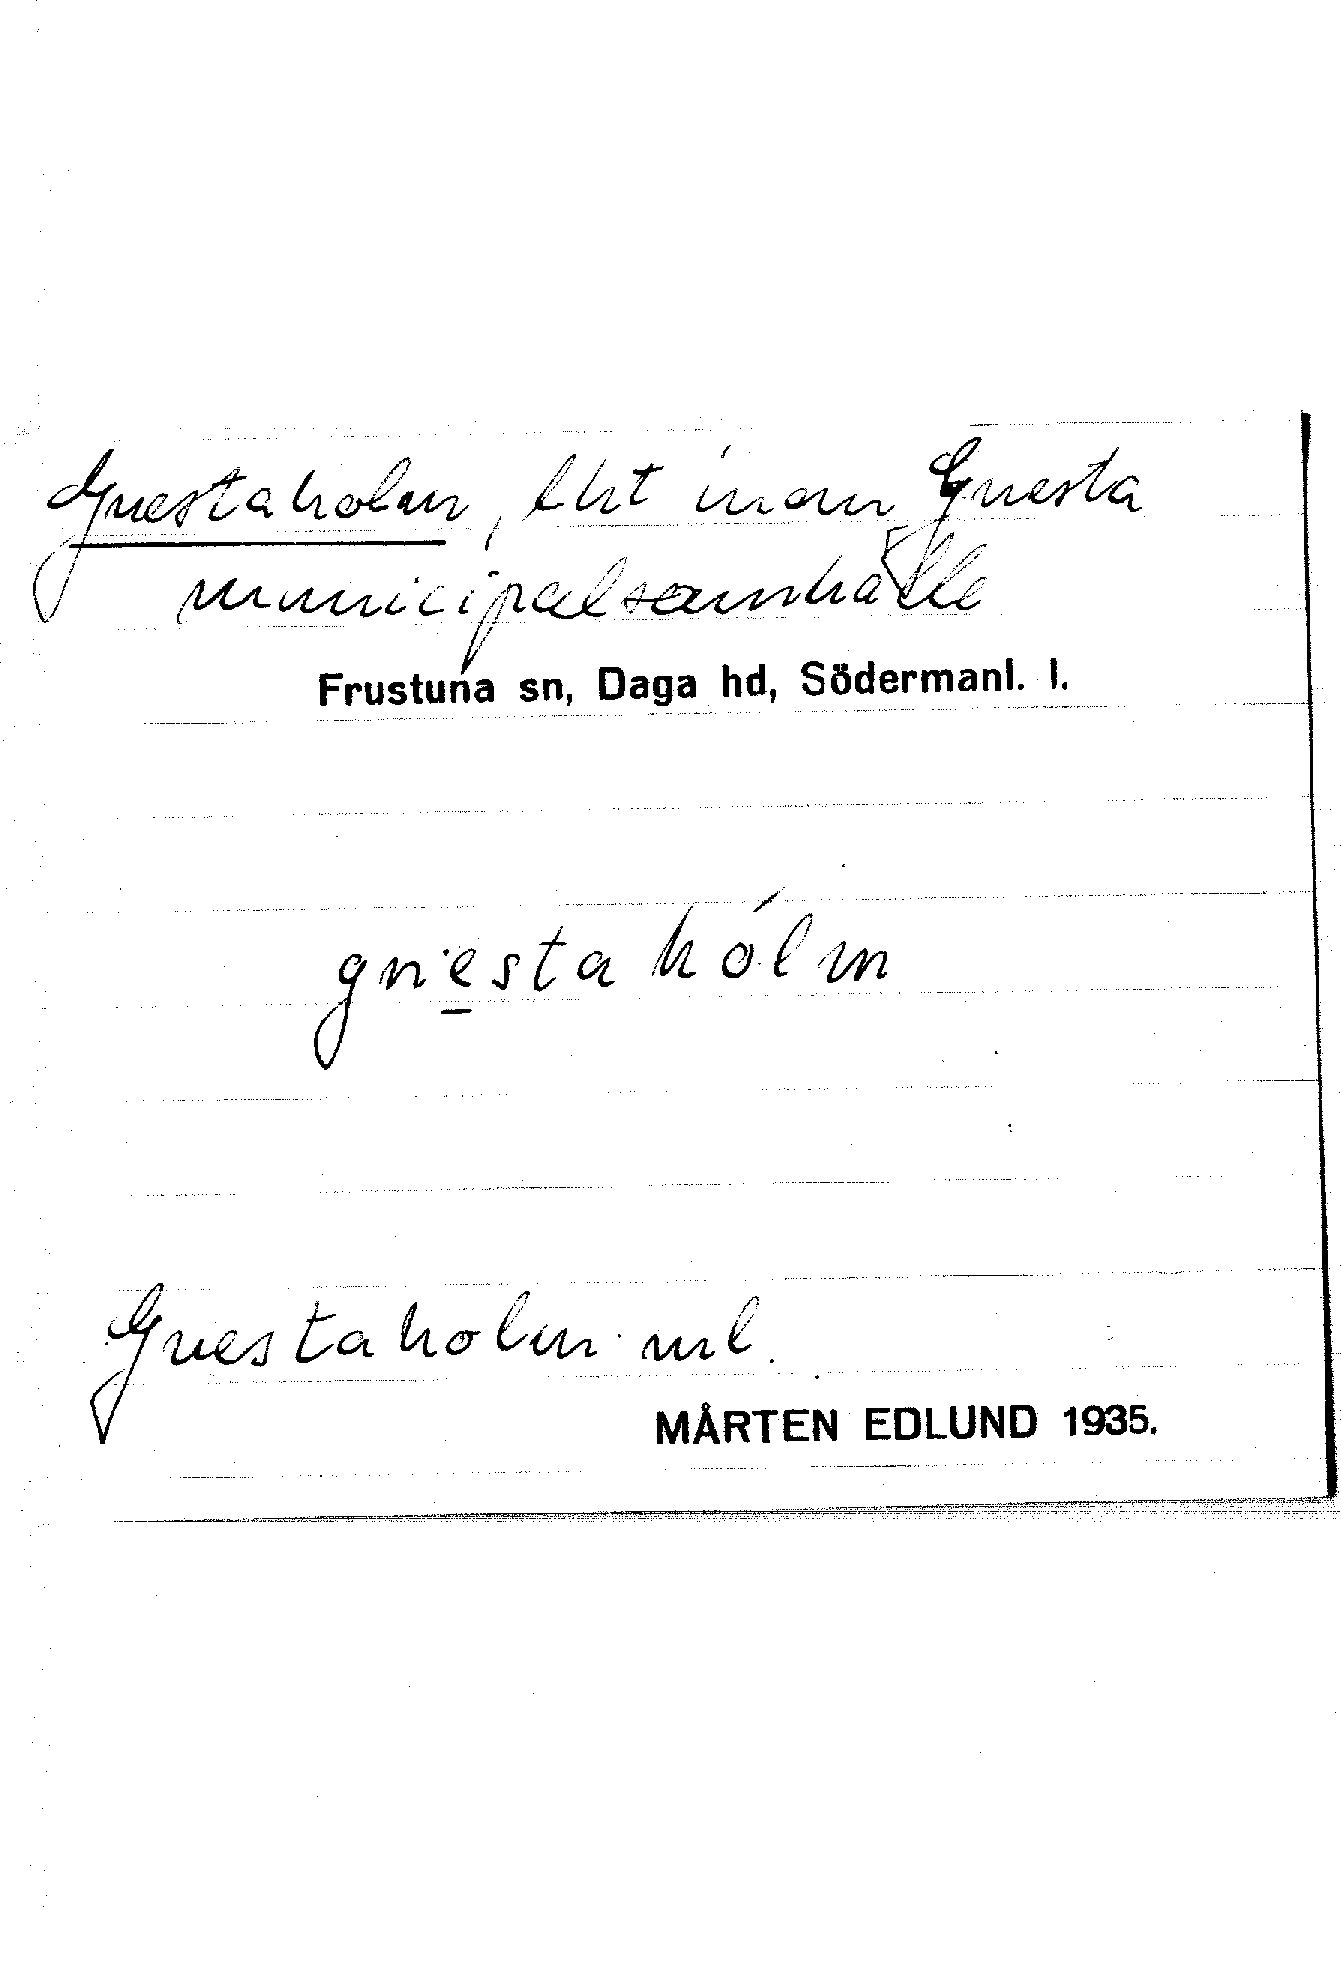 Gnestaholm, lht inom Gnesta
municipalsamhälle
Frustuna sn, Daga hd, Södermanl. l.
gnestahólm
Gnestaholm ml.
MÅRTEN EDLUND 1935.